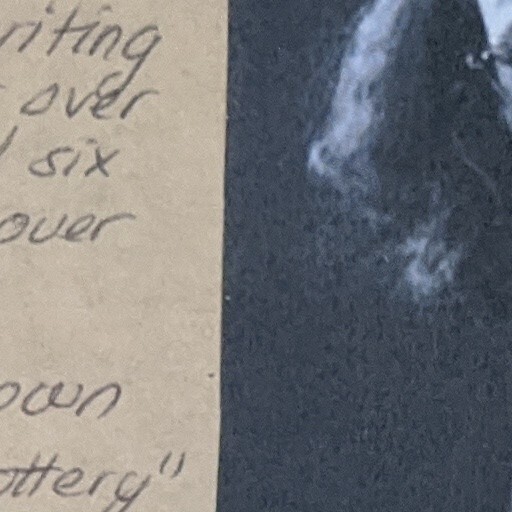 riting
over
six
over
own
ottery"